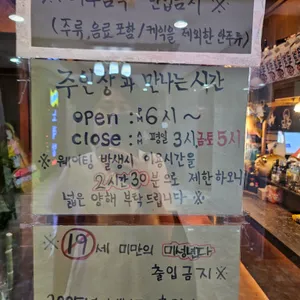 (주류,음료 포함/케익을 제외한 안주류)
주인장과 만나는 시간
open : 6시~
close : 평일 3시, 금토 5시
※ 웨이팅 발생시 이용시간을
2시간30분으로 제한하오니
넓은 양해 부탁드립니다 ※
※ 19세 미만의 미성년자
출입금지 ※